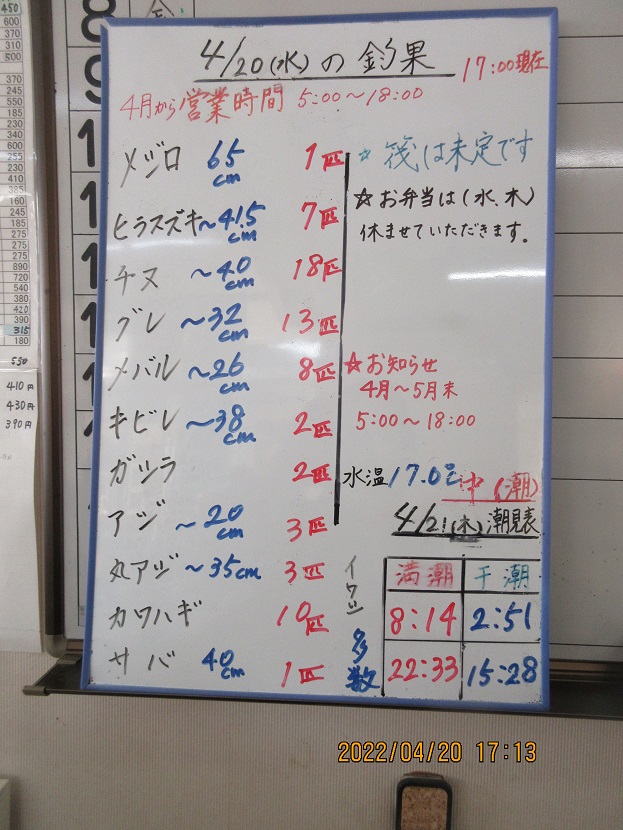 4/20(水)の釣果
17:00現在
4月から営業時間 5:00～18:00
メジロ 65cm 1匹
ヒラスズキ～41.5cm 7匹
チヌ ～40cm 18匹
グレ ～32cm 13匹
メバル ～26cm 8匹
キビレ ～38cm 2匹
ガシラ 2匹
アジ ～20cm 3匹
丸アジ ～35cm 3匹
カワハギ 10匹
サバ 40cm 1匹
イワシ 多数
☆ 筏は未定です
☆お弁当は(水、木)
休ませていただきます。
☆お知らせ
4月～5月末
5:00～18:00
水温17.0℃ 中(潮)
4/21(木)潮見表
満潮 干潮
8:14 2:51
22:33 15:28
410円
430円
390円
2022/04/20 17:13